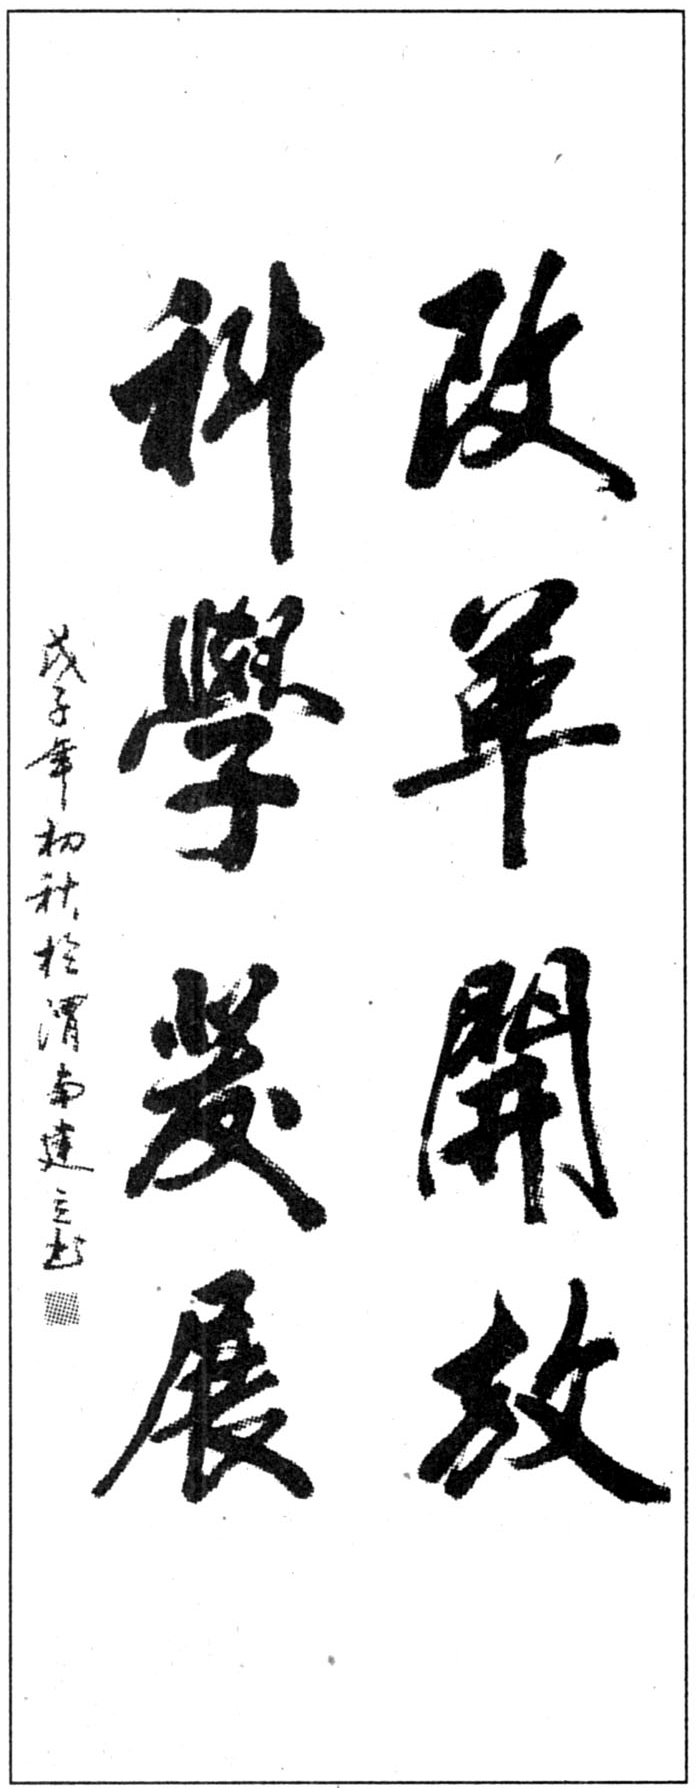 改革開放
科學發展
戊子年初秋於渭南建立書